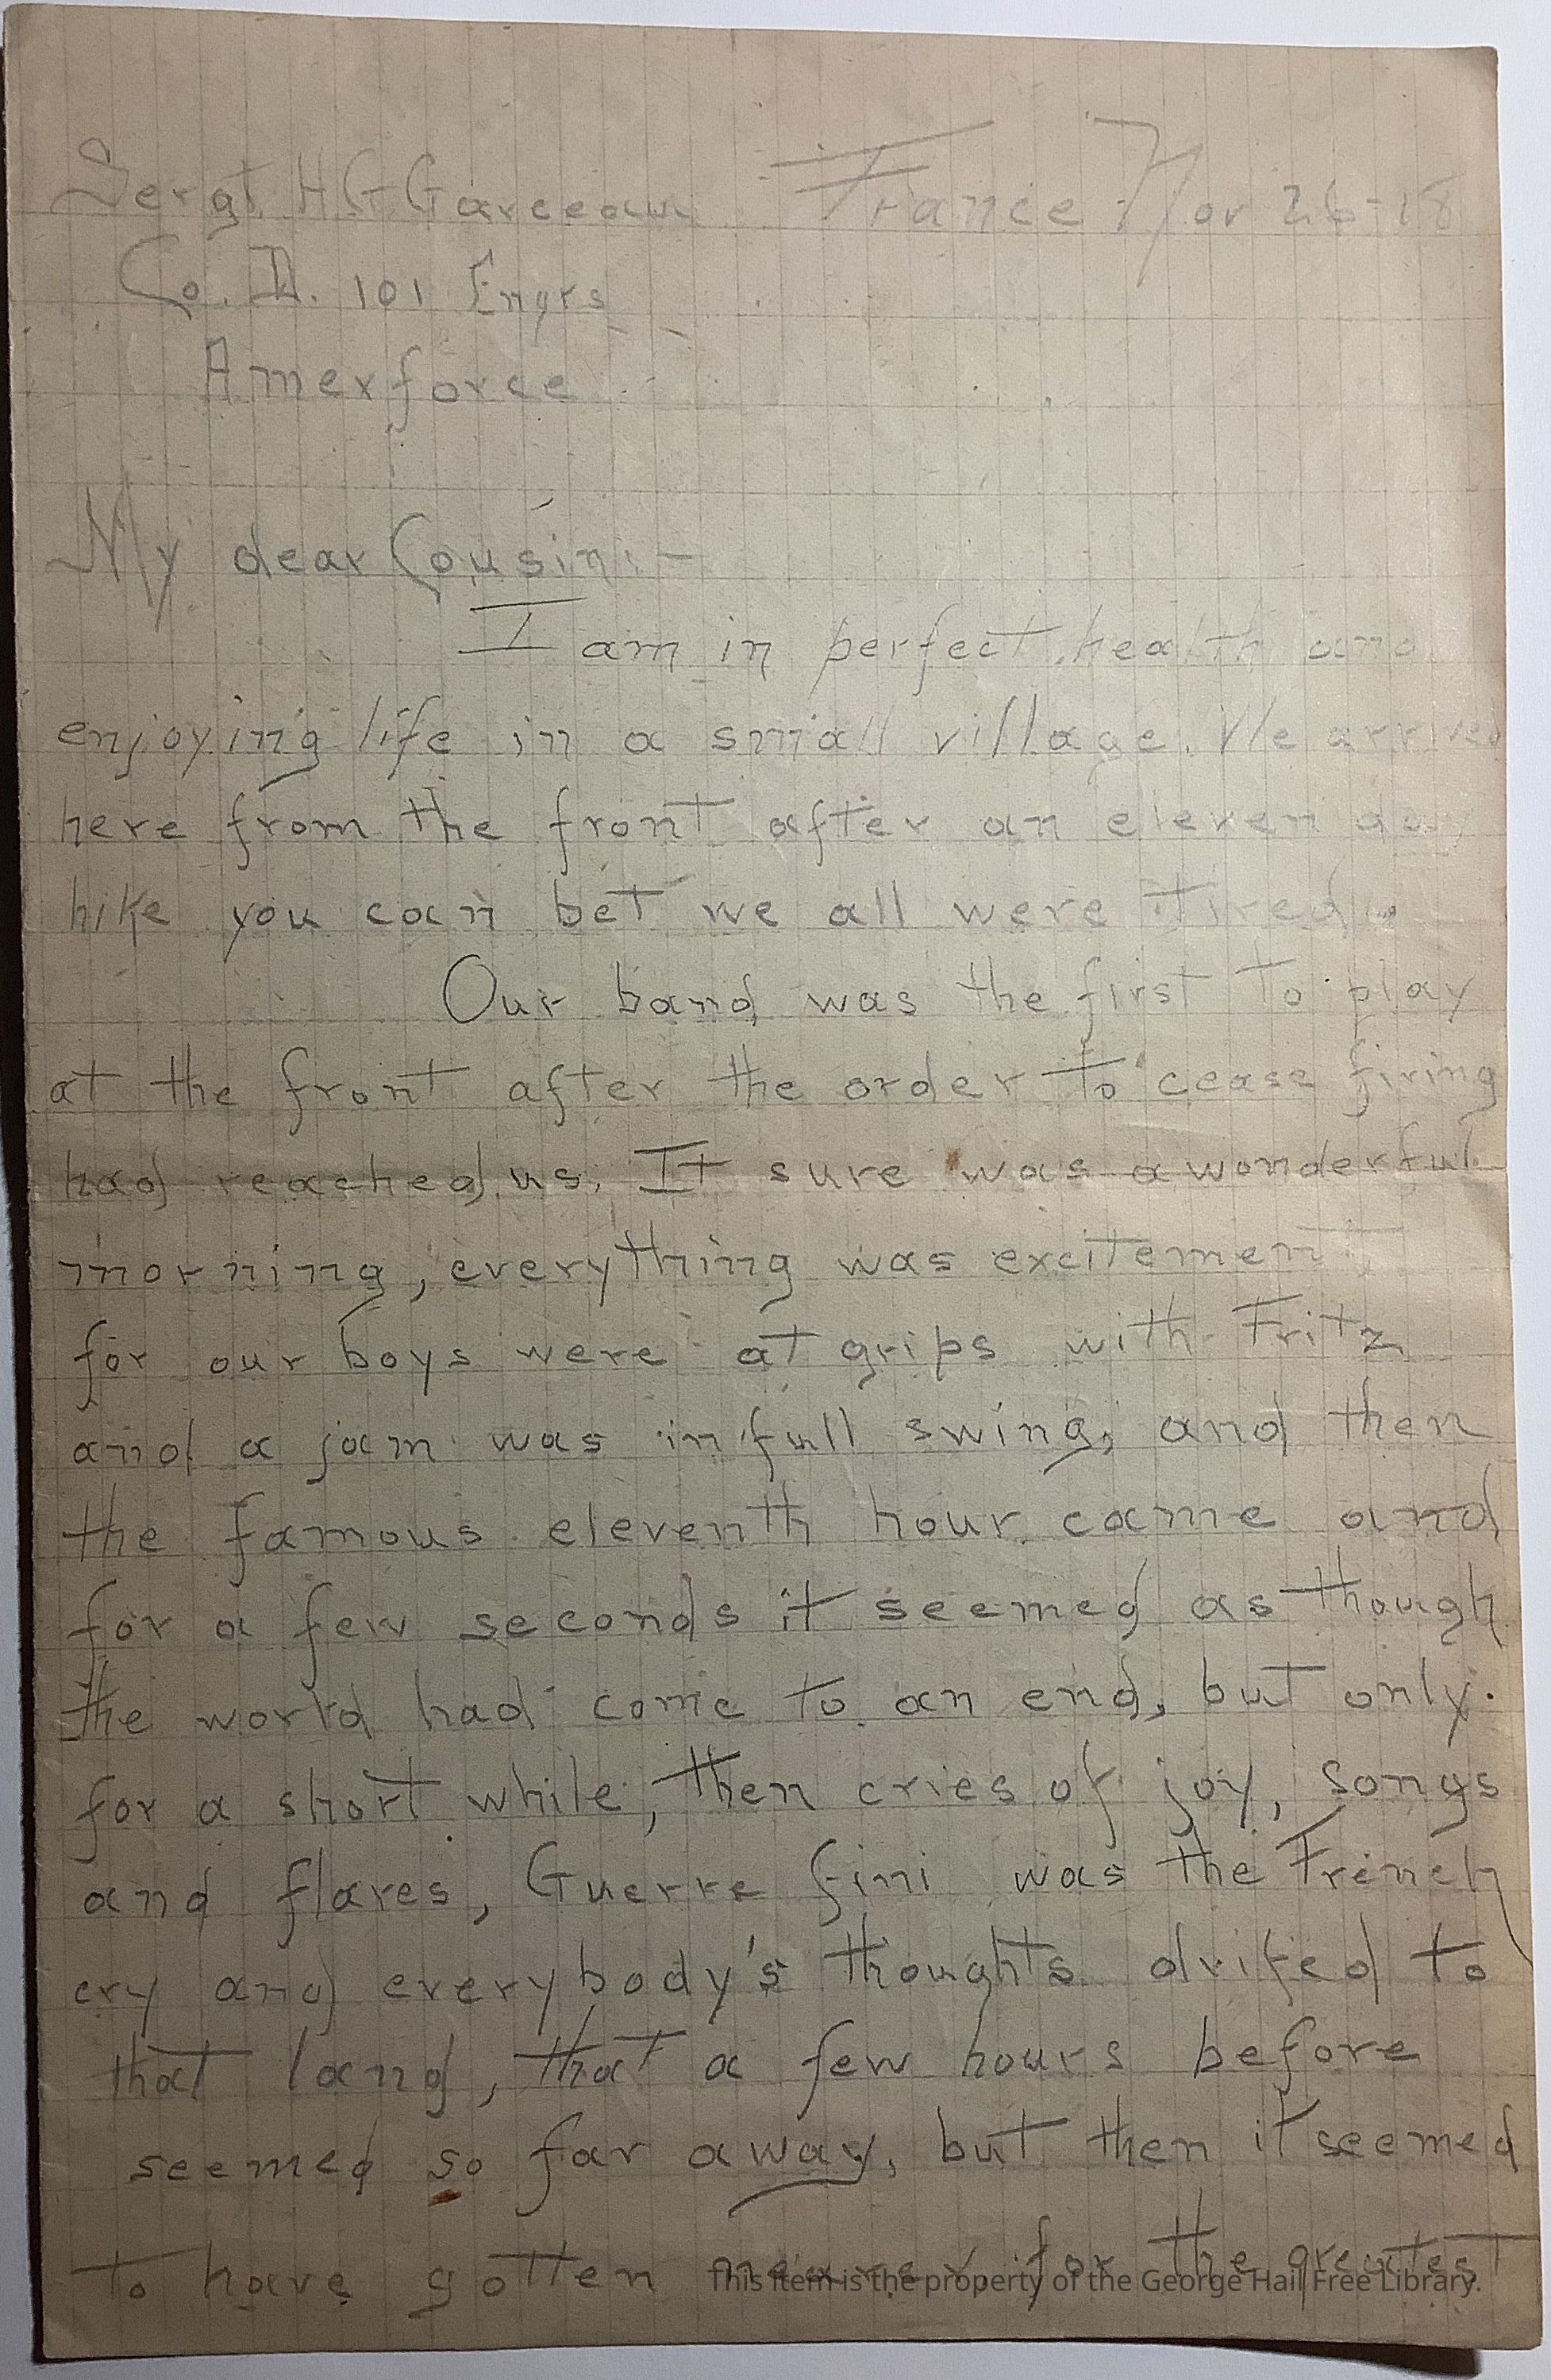 Sergt. H G Garceau France Nov 26-18
Co. D. 101 Engrs
Amexforce
My dear Cousin:-
I am in perfect health and
enjoying life in a small village. We arrived
here from the front after an eleven day
hike you can bet we all were tired.
Our band was the first to play
at the front after the order to cease firing
had reached us. It sure was a wonderful
morning, everything was excitement
for our boys were at grips with Fritz
and a jam was in full swing, and then
the famous eleventh hour came and
for a few seconds it seemed as though
the world had come to an end, but only
for a short while, then cries of joy, songs
and flares, Guerre fini was the French
cry and everybody's thoughts drifed to
that land, that a few hours before
seemed so far away, but then it seemed
to have gotten nearer, for the greatest
This item is the property of the George Hail Free Library.